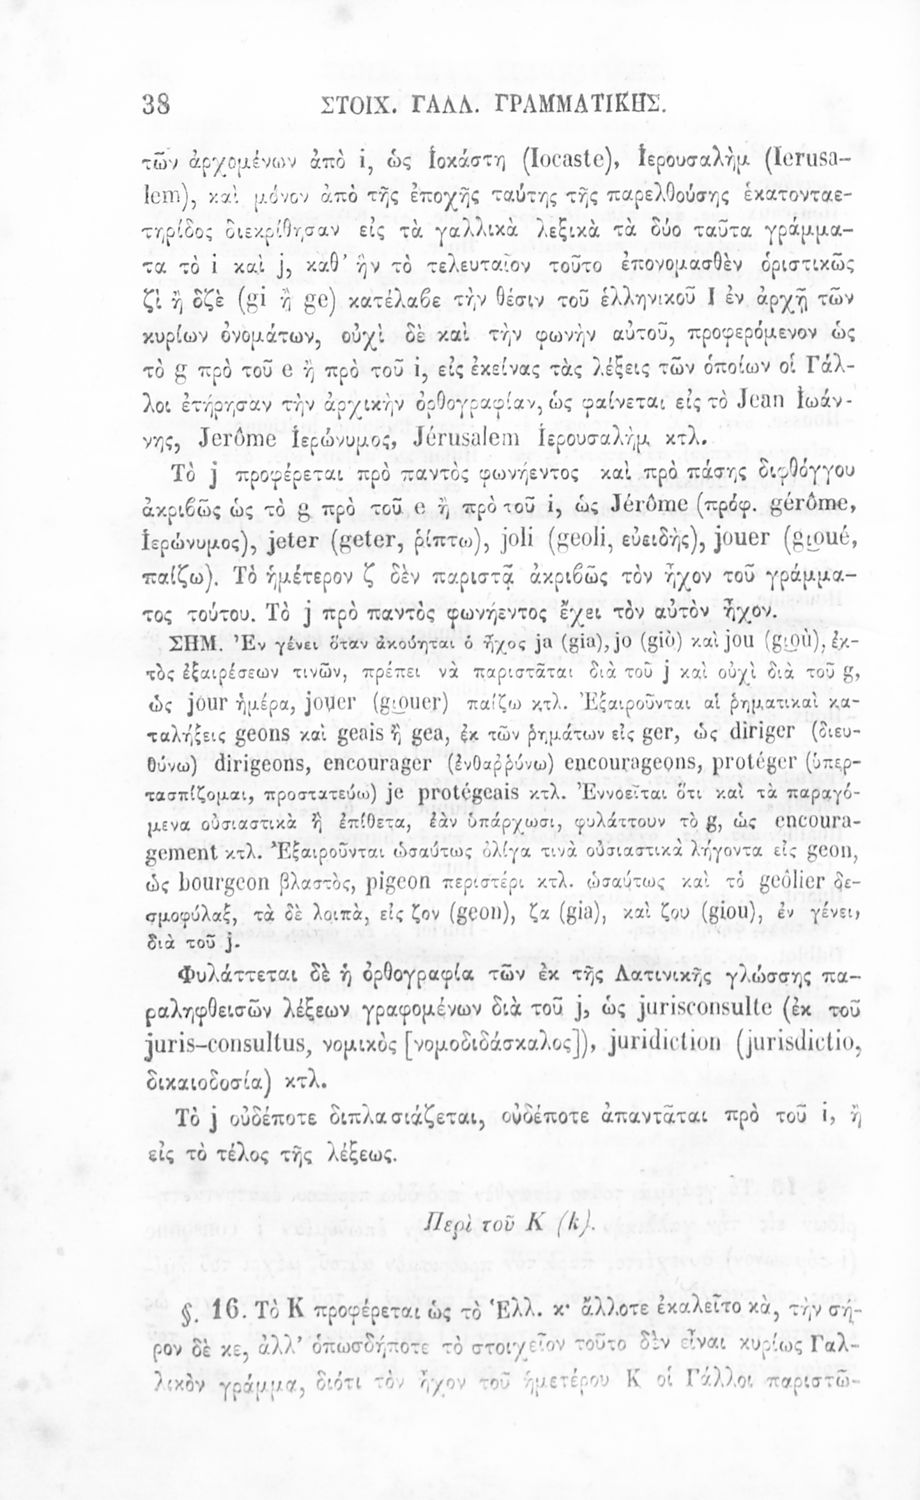 38 ΣΤΟΙΧ. ΓΑΛΛ. ΓΡΑΜΜΑΤΙΚΗΣ.
τῶν ἀρχομένων ἀπὸ i, ὡς Ἰοκάστη (Iocaste), Ἱερουσαλὴμ (Ierusa–
lem), καὶ μόνον ἀπὸ τῆς ἐποχῆς ταύτης τῆς παρελθούσης ἑκατονταε–
τηρίδος διεκρίθησαν εἰς τὰ γαλλικὰ λεξικὰ τὰ δύο ταῦτα γράμμα–
τα τὸ i καὶ j, καθ’ ἣν τὸ τελευταῖον τοῦτο ἐπονομασθὲν ὁριστικῶς
ζὶ ἢ δζὲ (gi ἢ ge) κατέλαβε τὴν θέσιν τοῦ ἑλληνικοῦ Ι ἐν ἀρχῇ τῶν
κυρίων ὀνομάτων, οὐχὶ δὲ καὶ τὴν φωνὴν αὐτοῦ, προφερόμενον ὡς
τὸ g πρὸ τοῦ e ἢ πρὸ τοῦ i, εἰς ἐκείνας τὰς λέξεις τῶν ὁποίων οἱ Γάλ-
λοι ἐτήρησαν τὴν ἀρχικὴν ὀρθογραφίαν, ὡς φαίνεται εἰς τὸ Jean Ἰωάν-
νης, Jerôme Ἱερώνυμος, Jérusalem Ἱερουσαλὴμ κτλ.
Τὸ j προφέρεται πρὸ παντὸς φωνήεντος καὶ πρὸ πάσης διφθόγγου
ἀκριβῶς ὡς τὸ g πρὸ τοῦ e ἢ πρὸ τοῦ i, ὡς Jérôme (πρόφ. gérôme,
Ἱερώνυμος), jeter (geter, ῥίπτω), joli (geoli, εὐειδὴς), jouer (gιoué,
παίζω). Τὸ ἡμέτερον ζ δὲν παριστᾷ ἀκριβῶς τὸν ἦχον τοῦ γράμμα–
τος τούτου. Τὸ j πρὸ παντὸς φωνήεντος ἔχει τὸν αὐτὸν ἦχον.
ΣΗΜ. Ἐν γένει ὅταν ἀκούηται ὁ ἦχος ja (gia), jo (giò) καὶ jou (gιοὺ), ἐκ–
τὸς ἐξαιρέσεων τινῶν, πρέπει νὰ παριστᾶται διὰ τοῦ j καὶ οὐχὶ διὰ τοῦ g,
ὡς jour ἡμέρα, jouer (gιouer) παίζω κτλ. Ἐξαιροῦνται αἱ ῥηματικαὶ κα–
ταλήξεις geons καὶ geais ἢ gea, ἐκ τῶν ῥημάτων εἰς ger, ὡς diriger (διευ–
θύνω) dirigeons, encourager (ἐνθαῤῥύνω) encourageons, protéger (ὑπερ–
τασπίζομαι, προστατεύω) je protégeais κτλ. Ἐννοεῖται ὅτι καὶ τὰ παραγό–
μενα οὐσιαστικὰ ἢ ἐπίθετα, ἐὰν ὑπάρχωσι, φυλάττουν τὸ g, ὡς encoura–
gement κτλ. Ἐξαιροῦνται ὡσαύτως ὀλίγα τινὰ οὐσιαστικὰ λήγοντα εἰς geon,
ὡς bourgeon βλαστὸς, pigeon περιστέρι κτλ. ὡσαύτως καὶ τὸ geôlier δε–
σμοφύλαξ, τὰ δὲ λοιπὰ, εἰς ζον (geon), ζα (gia), καὶ ζου (giou), ἐν γένει,
διὰ τοῦ j.
Φυλάττεται δὲ ἡ ὀρθογραφία τῶν ἐκ τῆς Λατινικῆς γλώσσης πα–
ραληφθεισῶν λέξεων γραφομένων διὰ τοῦ j, ὡς jurisconsulte (ἐκ τοῦ
juris–consultus, νομικὸς [νομοδιδάσκαλος]), juridiction (jurisdictio,
δικαιοδοσία) κτλ.
Τὸ j οὐδέποτε διπλασιάζεται, οὐδέποτε ἀπαντᾶται πρὸ τοῦ i, ἢ
εἰς τὸ τέλος τῆς λέξεως.
Περὶ τοῦ Κ (k).
§. 16. Τὸ Κ προφέρεται ὡς τὸ Ἑλλ. κ· ἄλλοτε ἐκαλεῖτο κὰ, τὴν σή–
ρον δὲ κε, ἀλλ’ ὁπωσδήποτε τὸ στοιχεῖον τοῦτο δὲν εἶναι κυρίως Γαλ–
λικὸν γράμμα, διότι τὸν ἦχον τοῦ ἡμετέρου Κ οἱ Γάλλοι παριστῶ–